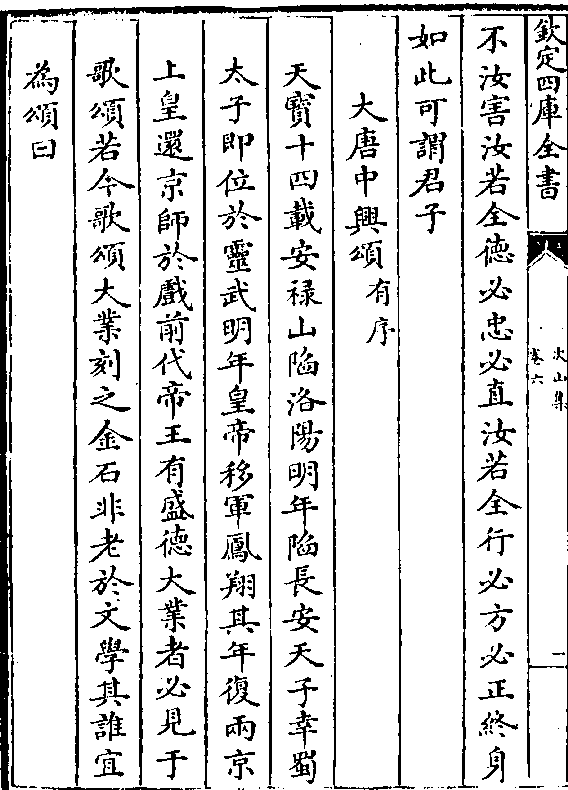 欽定四庫全書
次山集
卷六
二
不汝害汝若全德必忠必直汝若全行必方必正終身
如此可謂君子
大唐中興頌有序
天寶十四載安祿山陷洛陽明年陷長安天子幸蜀
太子即位於靈武明年皇帝移軍鳳翔其年復兩京
上皇還京師於戲前代帝王有盛德大業者必見于
歌頌若今歌頌大業刻之金石非老於文學其誰宜
為頌曰